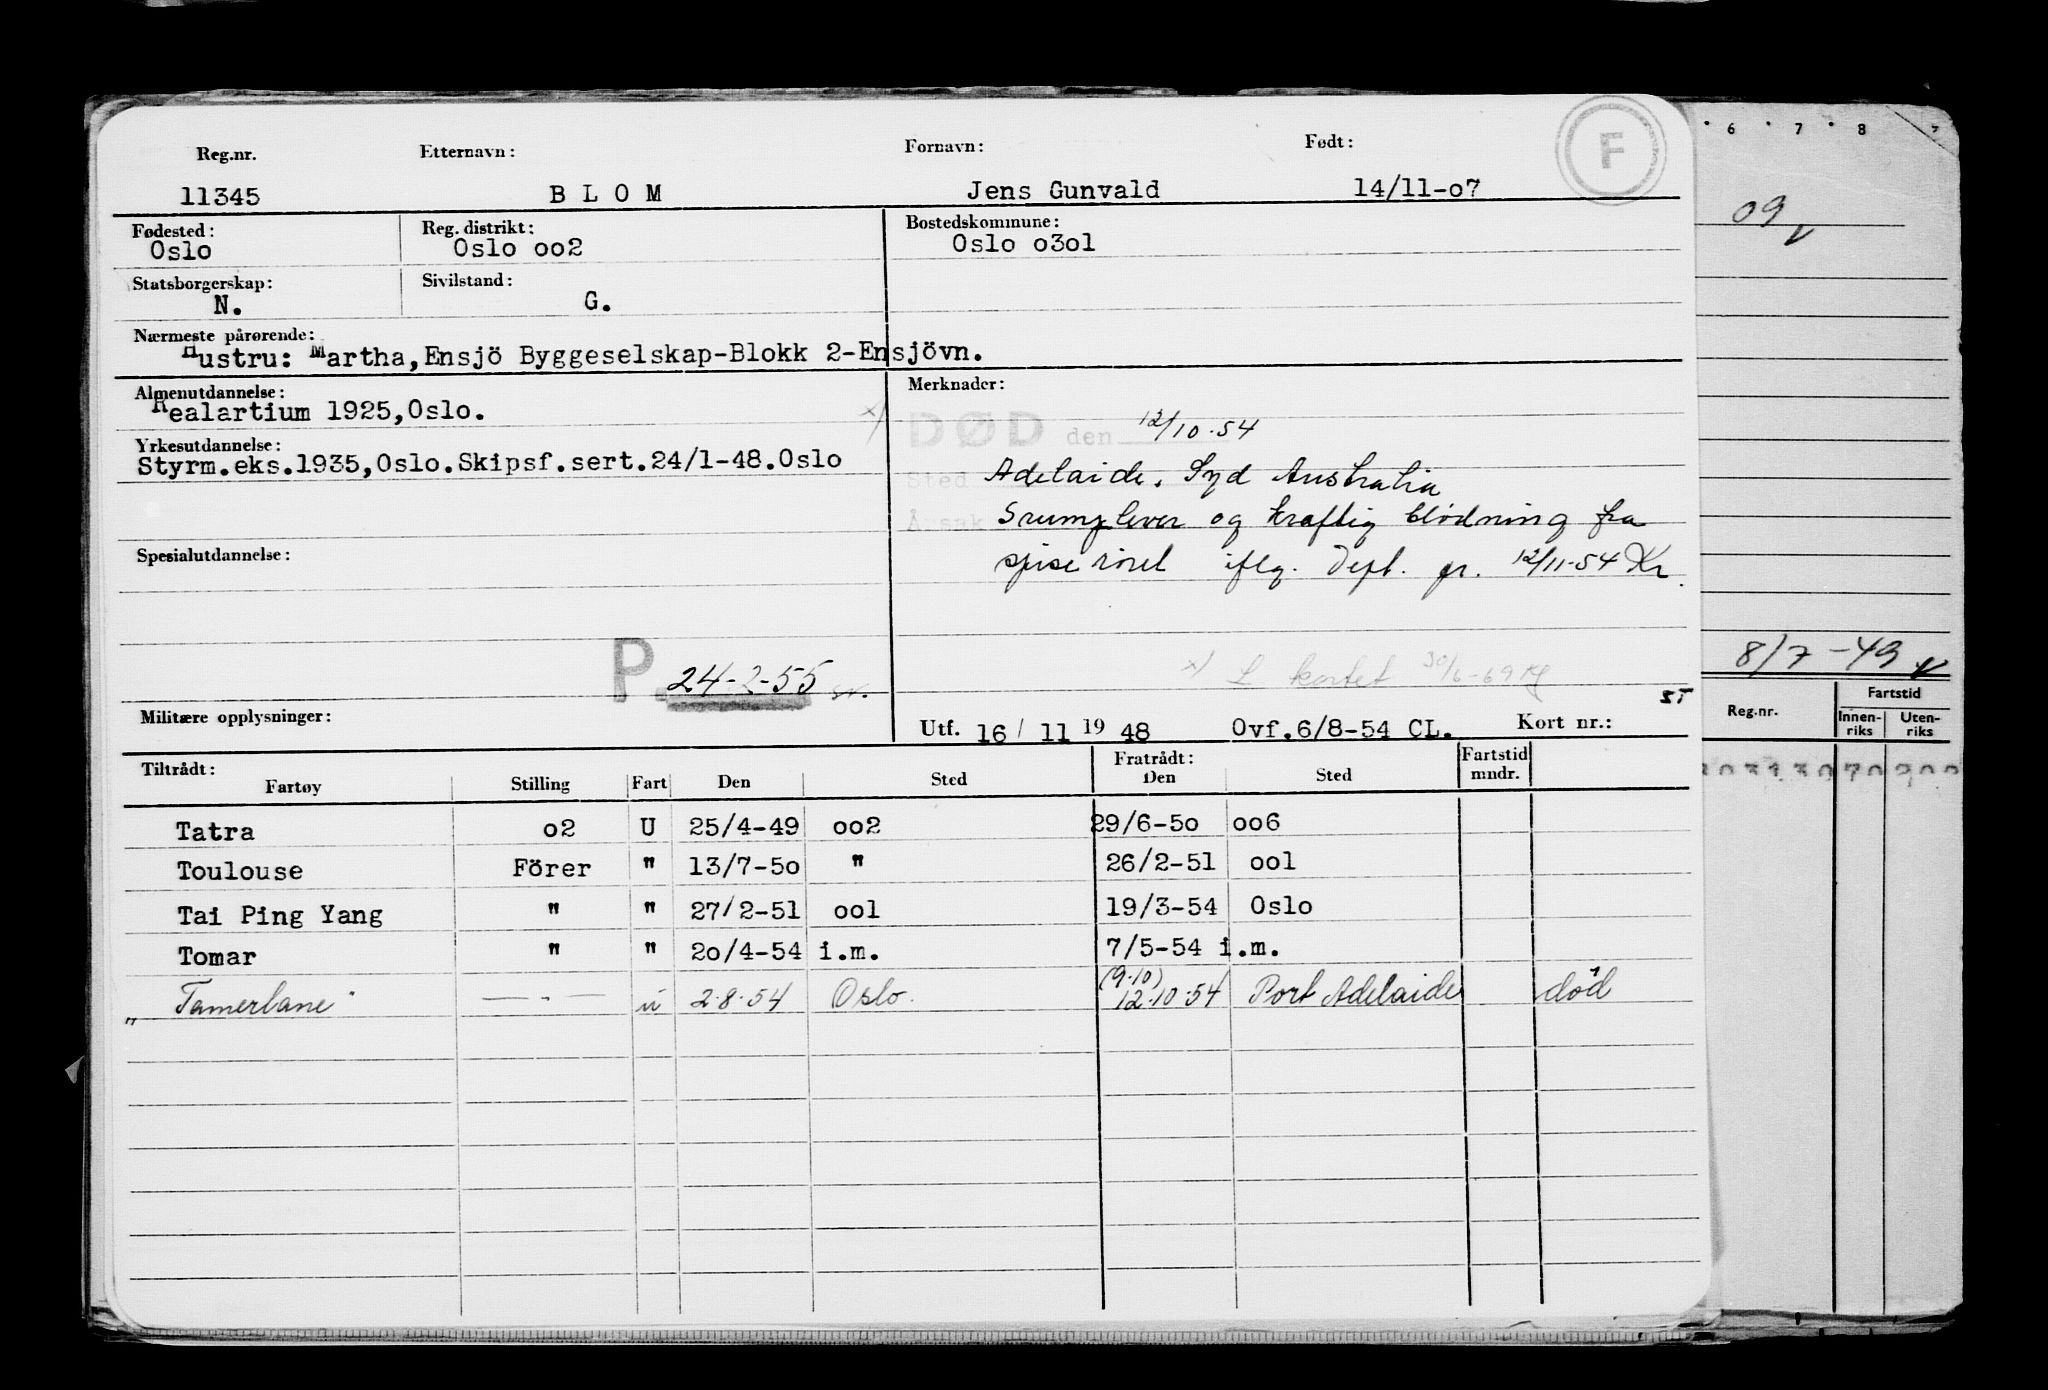 Reg.nr. Etternavn: Fornavn: Født: F
11345 B L O M Jens Gunvald 14/11-o7
Fødested: Reg. distrikt: Bostedskommune:
Oslo Oslo oo2 Oslo o3o1
Statsborgerskap: Sivilstand:
N. G.
Nærmeste pårørende:
Hustru: Martha,Ensjö Byggeselskap-Blokk 2-Ensjövn.
Almenutdannelse: Merknader:
Realartium 1925,Oslo.
x) DØD den 12/10.54
Yrkesutdannelse:
Styrm.eks.1935,Oslo.Skipsf.sert.24/1-48.Oslo
Sted Adelaide. Syd Australia
Årsak Srumplever og kraftig blödning fra
Spesialutdannelse:
spiseröret iflg. Dept. gr. 12/11-54 Kr.
P 24-2-55
x) L kortet 30/6-69
ST
Militære opplysninger: Utf. 16/ 11 19 48 Ovf.6/8-54 CL. Kort nr.:
Tiltrådt: Fratrådt: Fartstid mndr.
Fartøy Stilling Fart Den Sted Den Sted
Tatra o2 U 25/4-49 oo2 29/6-5o oo6
Toulouse Förer " 13/7-5o " 26/2-51 oo1
Tai Ping Yang " " 27/2-51 oo1 19/3-54 Oslo
Tomar " " 2o/4-54 i.m. 7/5-54 i.m.
(9.10)
„Tamerlane" —"— u 2.8.54 Oslo. 12.10.54 Port Adelaide död
6 7 8
09
8/7-49
Fartstid
Reg.nr. Innen-riks Uten-riks